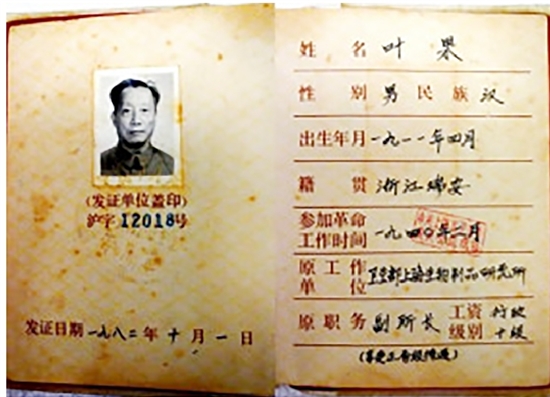 (发证单位盖印)
沪字12018号
发证日期一九八二年十月一日
姓名 叶
性别 男 民族 汉
出生年月一九一一年四月
籍贯 浙江瑞安
参加革命
工作时间一九四〇年二月
原工作
单位 卫生部上海生物制品研究所
原职务 副所长 工资级别 行政十级
(享受正局级待遇)